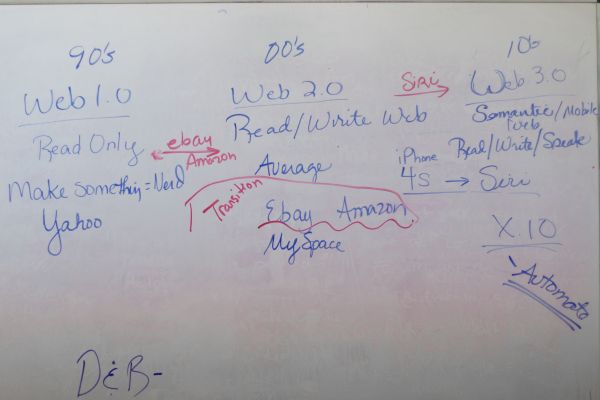 90's
Web 1.0
Read Only
Make something = Nerd
Yahoo
ebay
Amazon
00's
Web 2.0
Read/Write Web
Average
Transition
Ebay Amazon
MySpace
Siri
10's
Web 3.0
Semantic/Mobile
web
Read/Write/Speak
iPhone
4s → Siri
X.10
Automate
D&B-